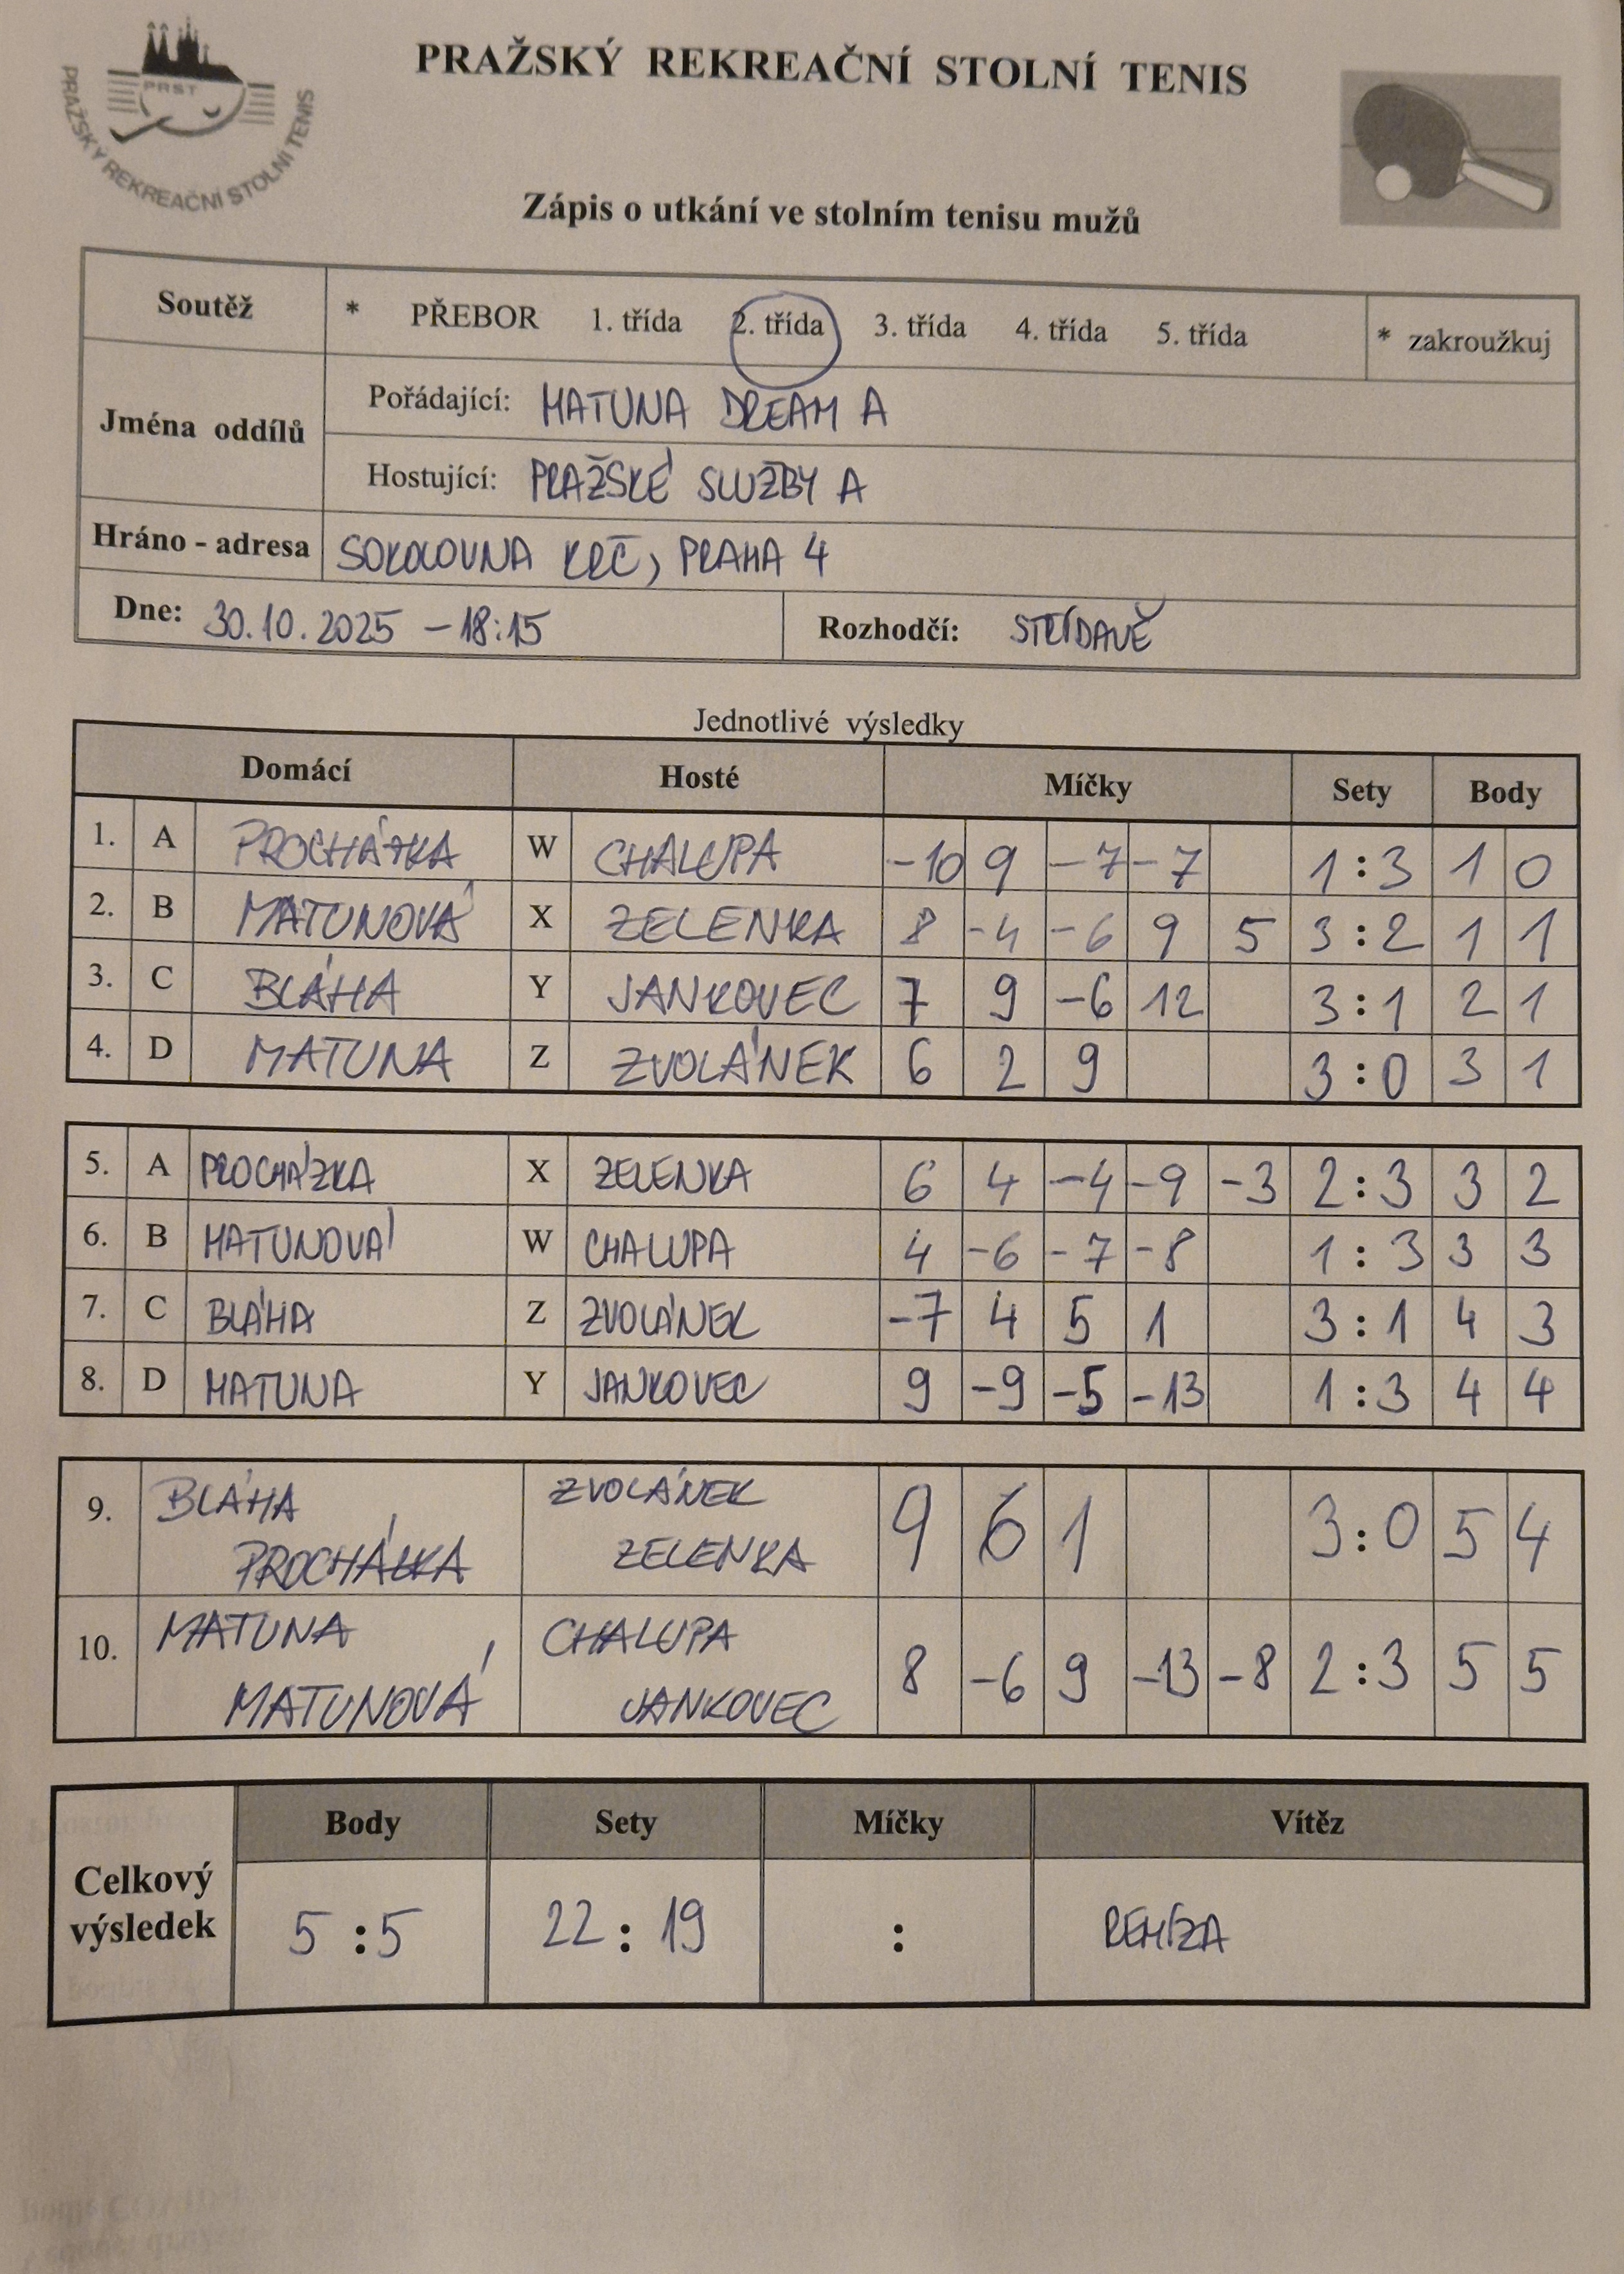 PRST
PRAŽSKÝ REKREAČNÍ STOLNÍ TENIS
PRAŽSKÝ REKREAČNÍ STOLNÍ TENIS
Zápis o utkání ve stolním tenisu mužů
Soutěž * PŘEBOR 1. třída 2. třída 3. třída 4. třída 5. třída * zakroužkuj
Jména oddílů
Pořádající: MATUNA DREAM A
Hostující: PRAŽSKÉ SLUŽBY A
Hráno - adresa SOKOLOVNA KRČ, PRAHA 4
Dne: 30.10.2025 - 18:15 Rozhodčí: STŘÍDAVĚ
Jednotlivé výsledky
Domácí Hosté Míčky Sety Body
1. A PROCHÁZKA W CHALUPA -10 9 -7 -7 1:3 1 0
2. B MATUNOVÁ X ZELENKA 8 -4 -6 9 5 3:2 1 1
3. C BLÁHA Y JANKOVEC 7 9 -6 12 3:1 2 1
4. D MATUNA Z ZVOLÁNEK 6 2 9 3:0 3 1
5. A PROCHÁZKA X ZELENKA 6 4 -4 -9 -3 2:3 3 2
6. B MATUNOVÁ W CHALUPA 4 -6 -7 -8 1:3 3 3
7. C BLÁHA Z ZVOLÁNEK -7 4 5 1 3:1 4 3
8. D MATUNA Y JANKOVEC 9 -9 -5 -13 1:3 4 4
9. BLÁHA ZVOLÁNEK 9 6 1 3:0 5 4
PROCHÁZKA ZELENKA
10. MATUNA CHALUPA 8 -6 9 -13 -8 2:3 5 5
MATUNOVÁ JANKOVEC
Body Sety Míčky Vítěz
Celkový výsledek 5:5 22:19 : REMÍZA